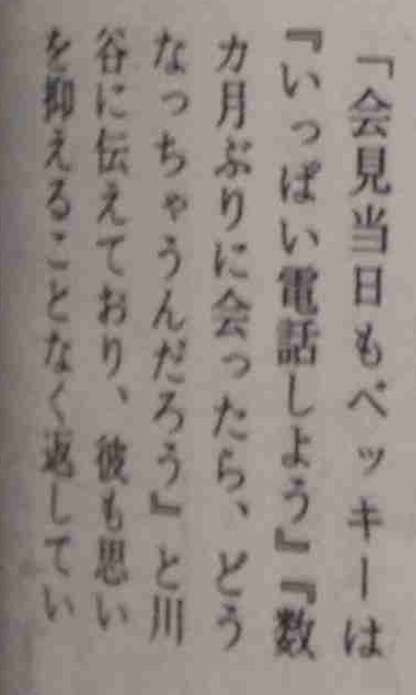 「会見当日もベッキーは
『いっぱい電話しよう』『数
カ月ぶりに会ったら、どう
なっちゃうんだろう』と川
谷に伝えており、彼も思い
を抑えることなく返してい